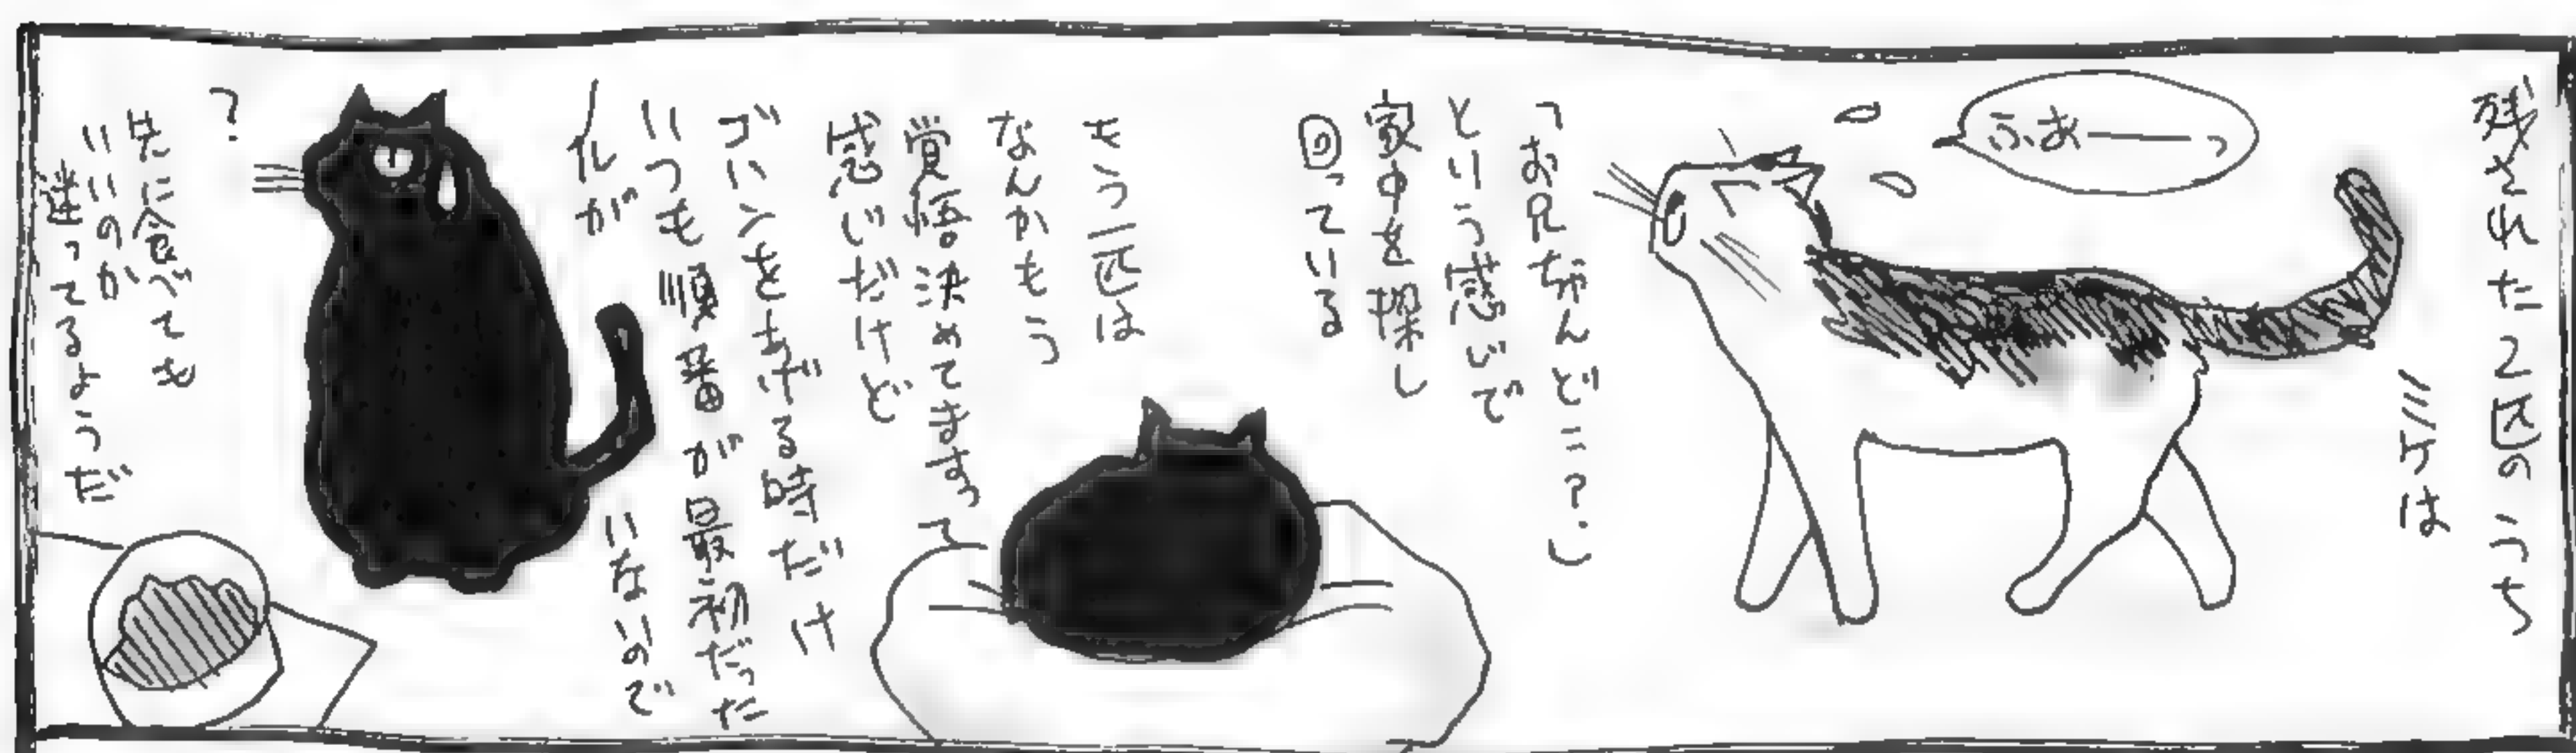 残された2匹のうち
ミケは
ふあーっ
「お兄ちゃんどこ?」
という感じで
家中を探し
回っている
もう一匹は
なんかもう
覚悟決めてますって
感じだけど
ゴハンをあげる時だけ
いつも順番が最初だった
仏が
いないので
?
先に食べても
いいのか
迷ってるようだ